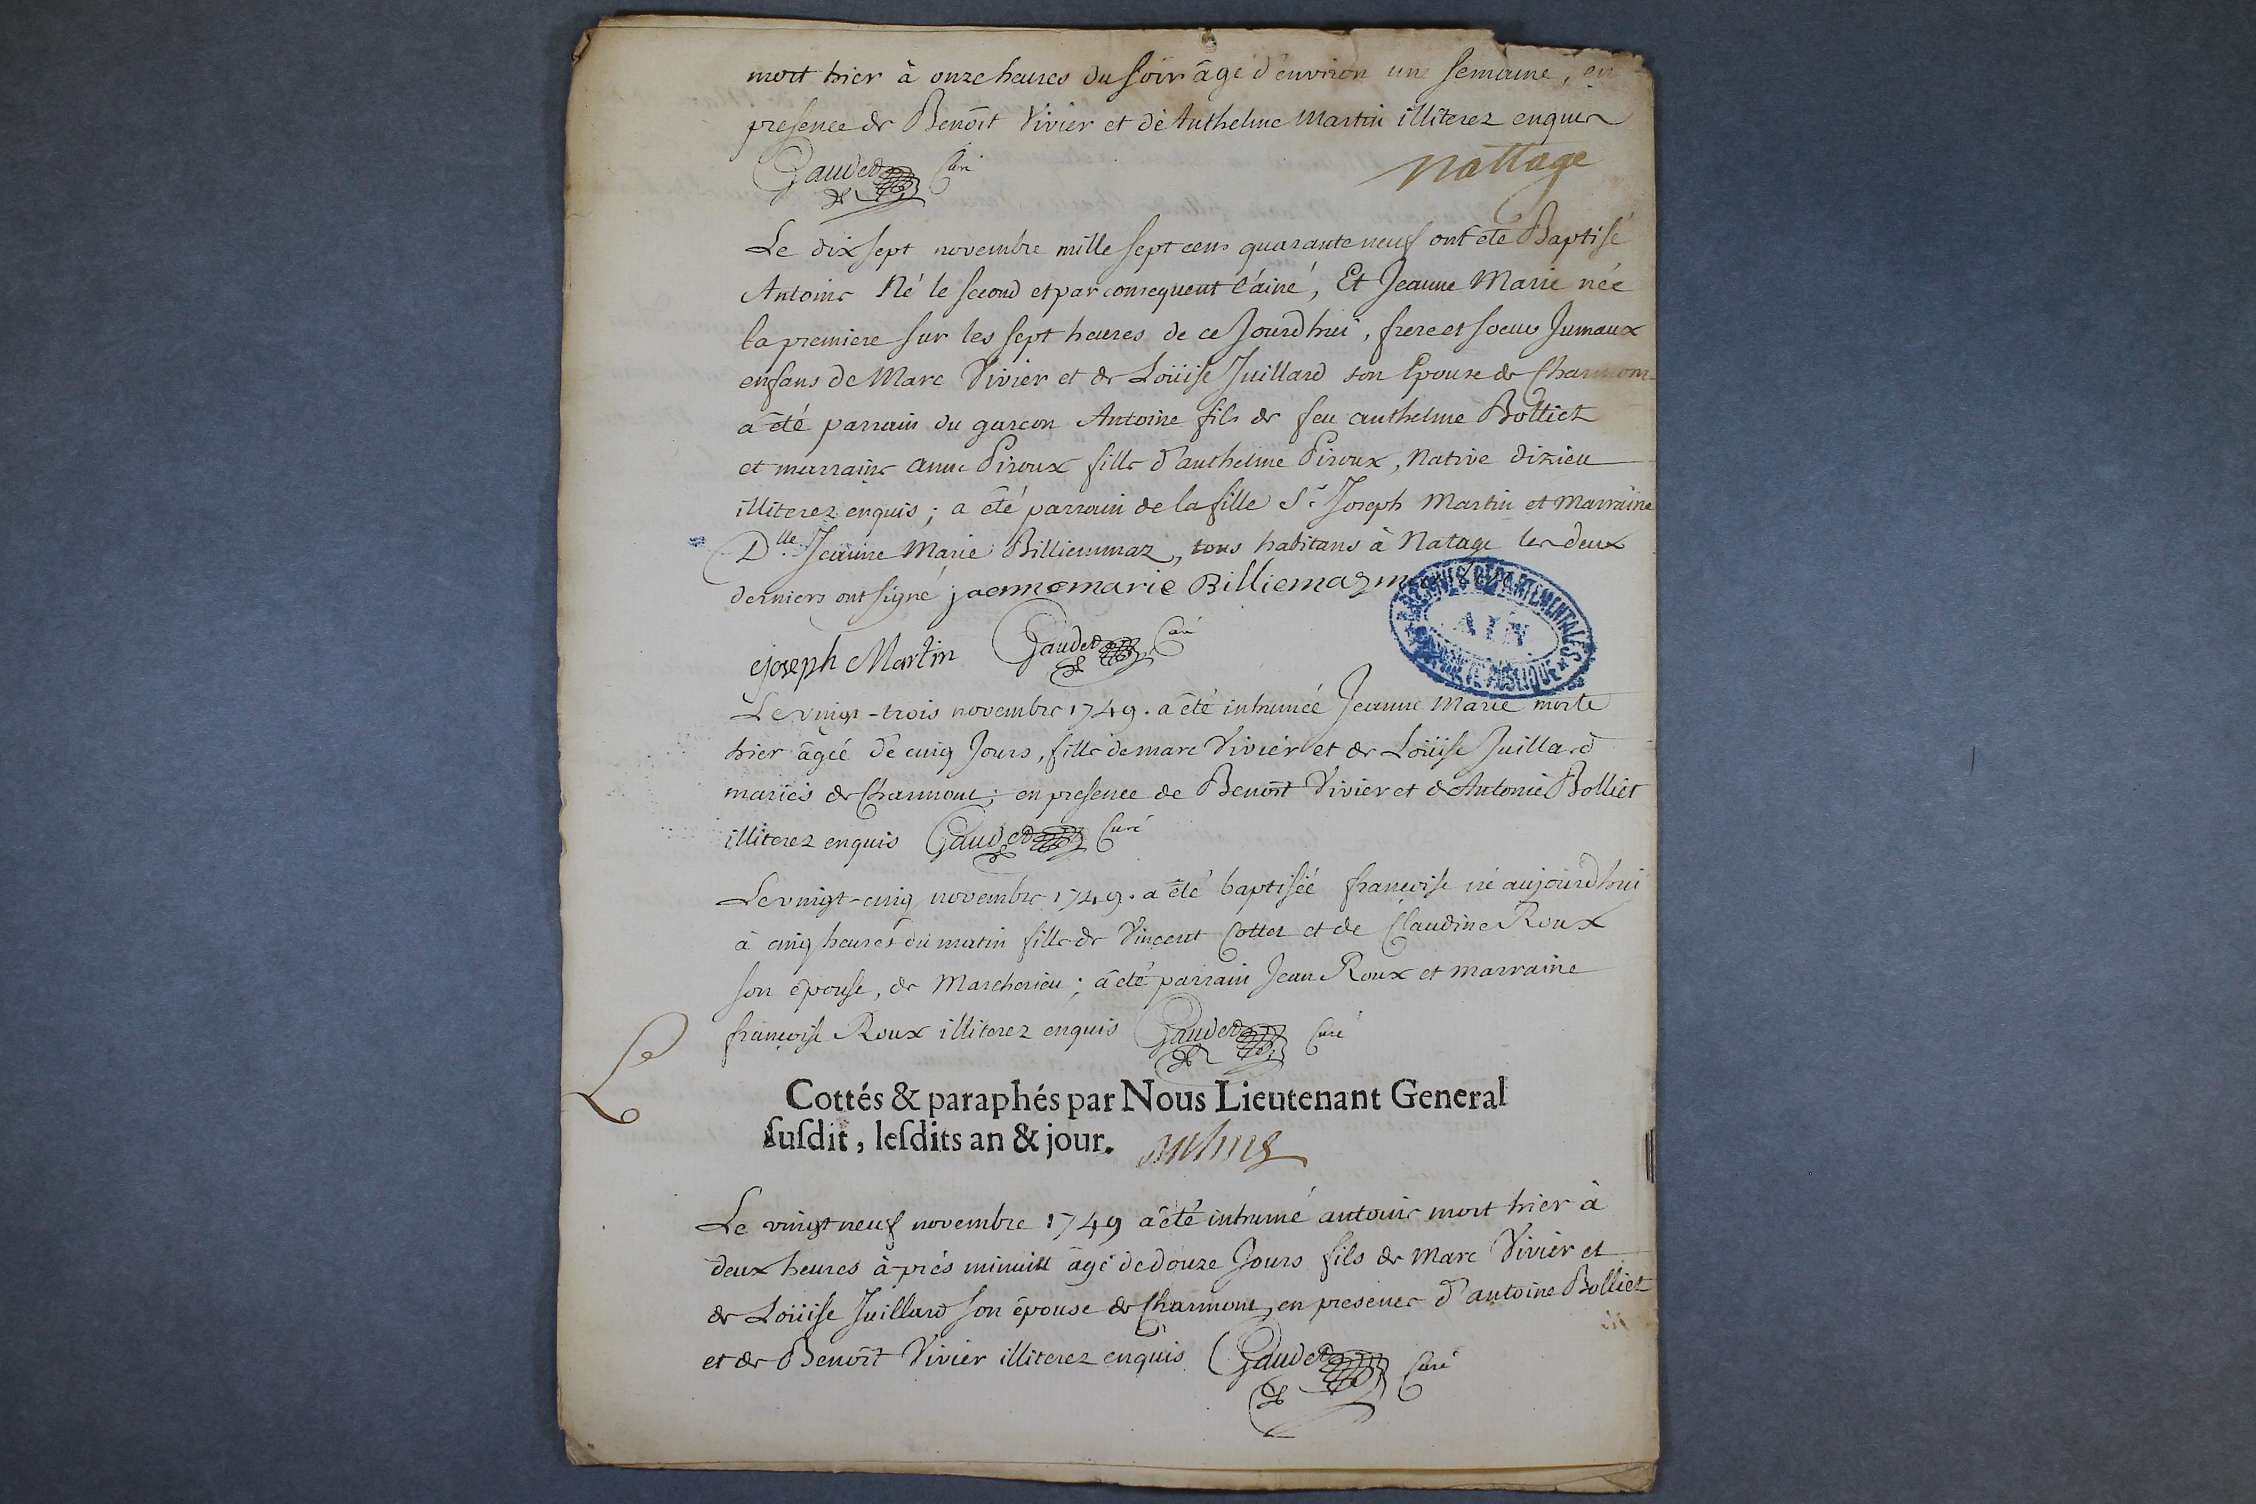 mort hier à onze heures du soir âgé d'environ une semaine, en
presence de Benoît Vivier et de Anthelme Martin illiterez enquis
Gaudet Curé
Nattage
Le dix sept novembre mille sept cens quarante neuf ont été Baptisé
Antoine Né le second et par consequent l'ainé, Et Jeanne Marie née
la premiere sur les sept heures de ce Jourd'hui, frere et soeur Jumaux
enfans de Marc Vivier et de Loüise Juillard son Epouse de Charmont
a été parrain du garcon Antoine fils de feu anthelme Bolliet
et marraine anne Piroux fille d'anthelme Piroux, Native dizieu
illiterez enquis; a été parrain de la fille Sr Joseph Martin et Marraine
Dlle Jeanne Marie Billiemmaz, tous habitans à Natage les deux
derniers ont signé jaenne marie Billiemaz
ARCHIVES DEPARTEMENTALES
AIN
Joseph Martin Gaudet Curé
Le vingt-trois novembre 1749. a été inhumée Jeanne Marie morte
hier âgée de cinq Jours, fille de marc Vivier et de Loüise Juillard
mariés de Charmont; en presence de Benoît Vivier et d'Antoine Bolliet
illiterez enquis Gaudet Curé
Le vingt-cinq novembre 1749. a été baptisée françoise né aujourd'hui
à cinq heures du matin fille de Vincent Cottet et de Claudine Roux
son épouse, de Marcherieu; a été parrain Jean Roux et marraine
françoise Roux illiterez enquis Gaudet Curé
Cottés & paraphés par Nous Lieutenant General
susdit, lesdits an & jour.
Le vingt neuf novembre 1749 a été inhumé antoine mort hier à
deux heures à prés minuit âgé de douze Jours fils de Marc Vivier et
de Loüise Juillard son épouse de Charmont, en presence d'antoine Bolliet
et de Benoît Vivier illiterez enquis Gaudet Curé